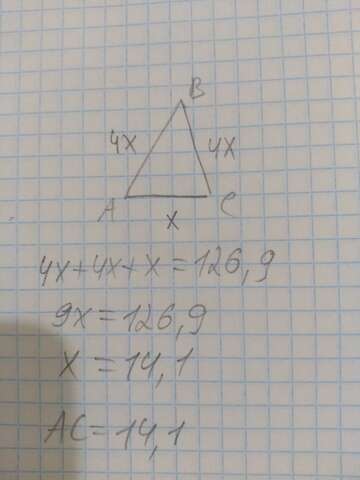 B
4x 4x
A C
x
4x+4x+x=126,9
9x=126,9
x=14,1
AC=14,1